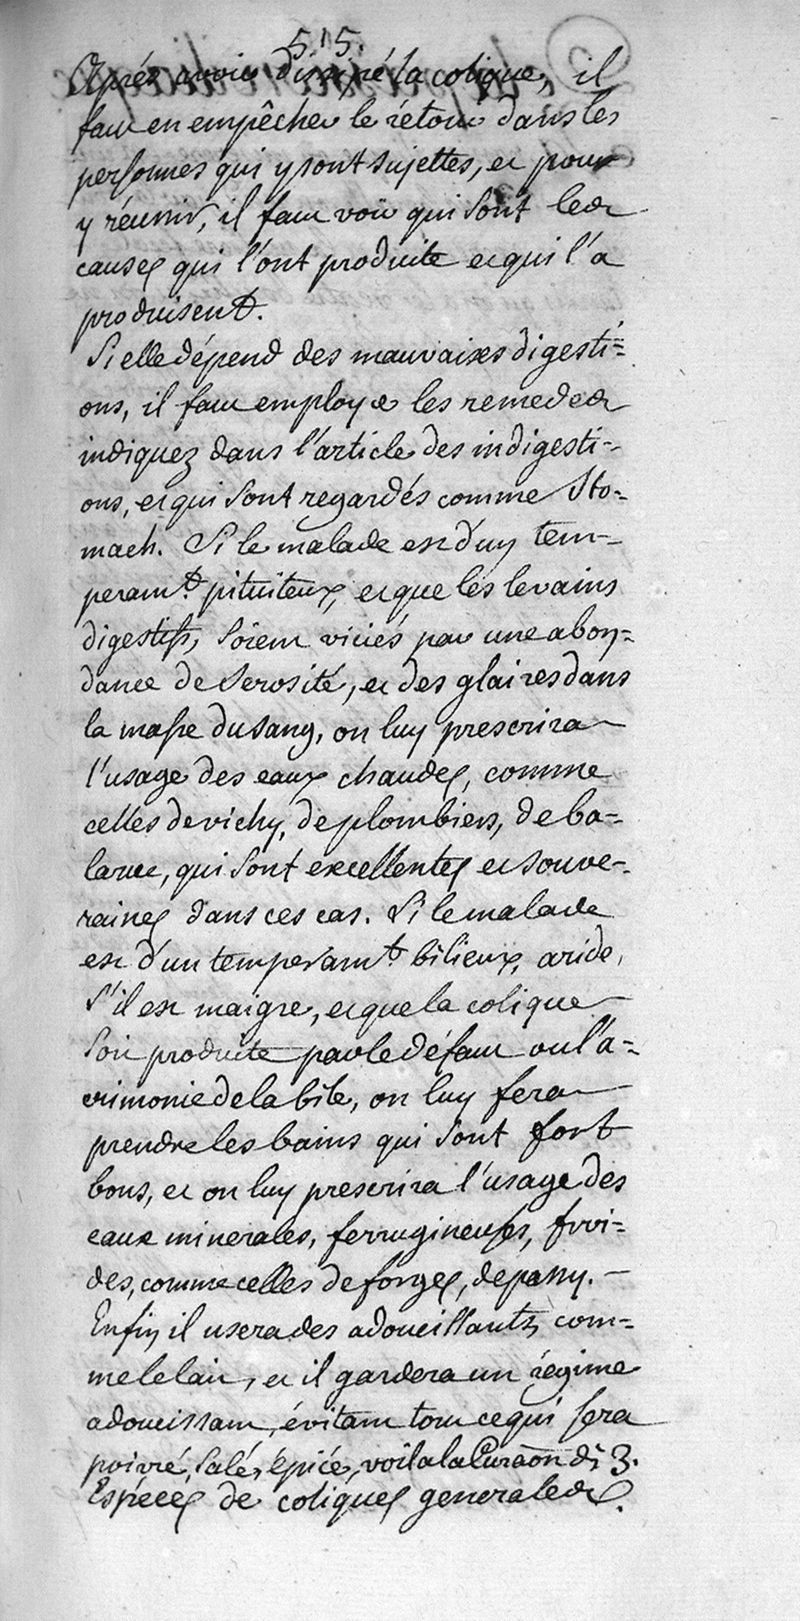 515.
Après avoir dissipé la colique, il
faut en empêcher le retour dans les
personnes qui y sont sujettes, et pour
y réussir, il faut voir qui sont les
causes qui l'ont produite et qui l'a
produisent.
Si elle dépend des mauvaises digesti=
ons, il faut employer les remedes
indiquez dans l'article des indigesti-
ons, et qui sont regardés comme Sto=
mach. Si le malade est d'un tem-
peram.t pituiteux, et que les levains
digestifs, soient viciés par une abon=
dance de Serosité, et des glaires dans
la masse du sang, on luy prescrira
l'usage des eaux chaudes, comme
celles de vichy, de plombiers, de ba=
laruc, qui sont excellentes et souve-
raines dans ces cas. Si le malade
est d'un temperam.t bilieux, aride,
s'il est maigre, et que la colique
soit produite par le défaut ou l'a=
crimonie de la bile, on luy fera
prendre les bains qui sont fort
bons, et on luy prescrira l'usage des
eaux minerales, ferrugineuses, froi=
des, comme celles de forges, de passy. -
Enfin il usera des adoucissants, com=
me le lait, et il gardera un régime
adoucissant, évitant tout ce qui sera
poivré, salé, épicé, voila la Curaōn de 3.
Espéces de coliques generales.